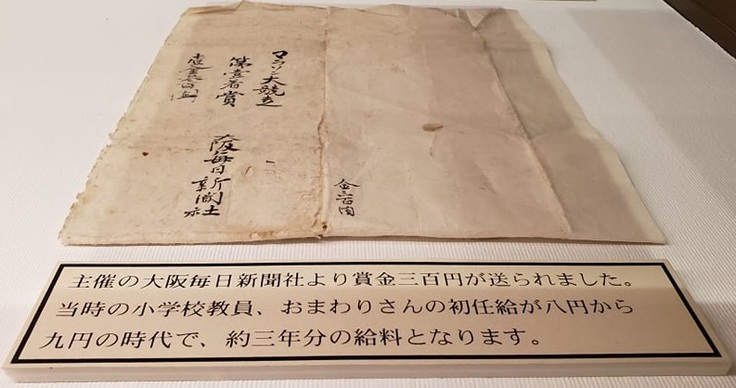 マラソン大競走
第壹着賞
金三百円
大阪毎日
新聞社
金三百円
主催の大阪毎日新聞社より賞金三百円が送られました。
当時の小学校教員、おまわりさんの初任給が八円から
九円の時代で、約三年分の給料となります。